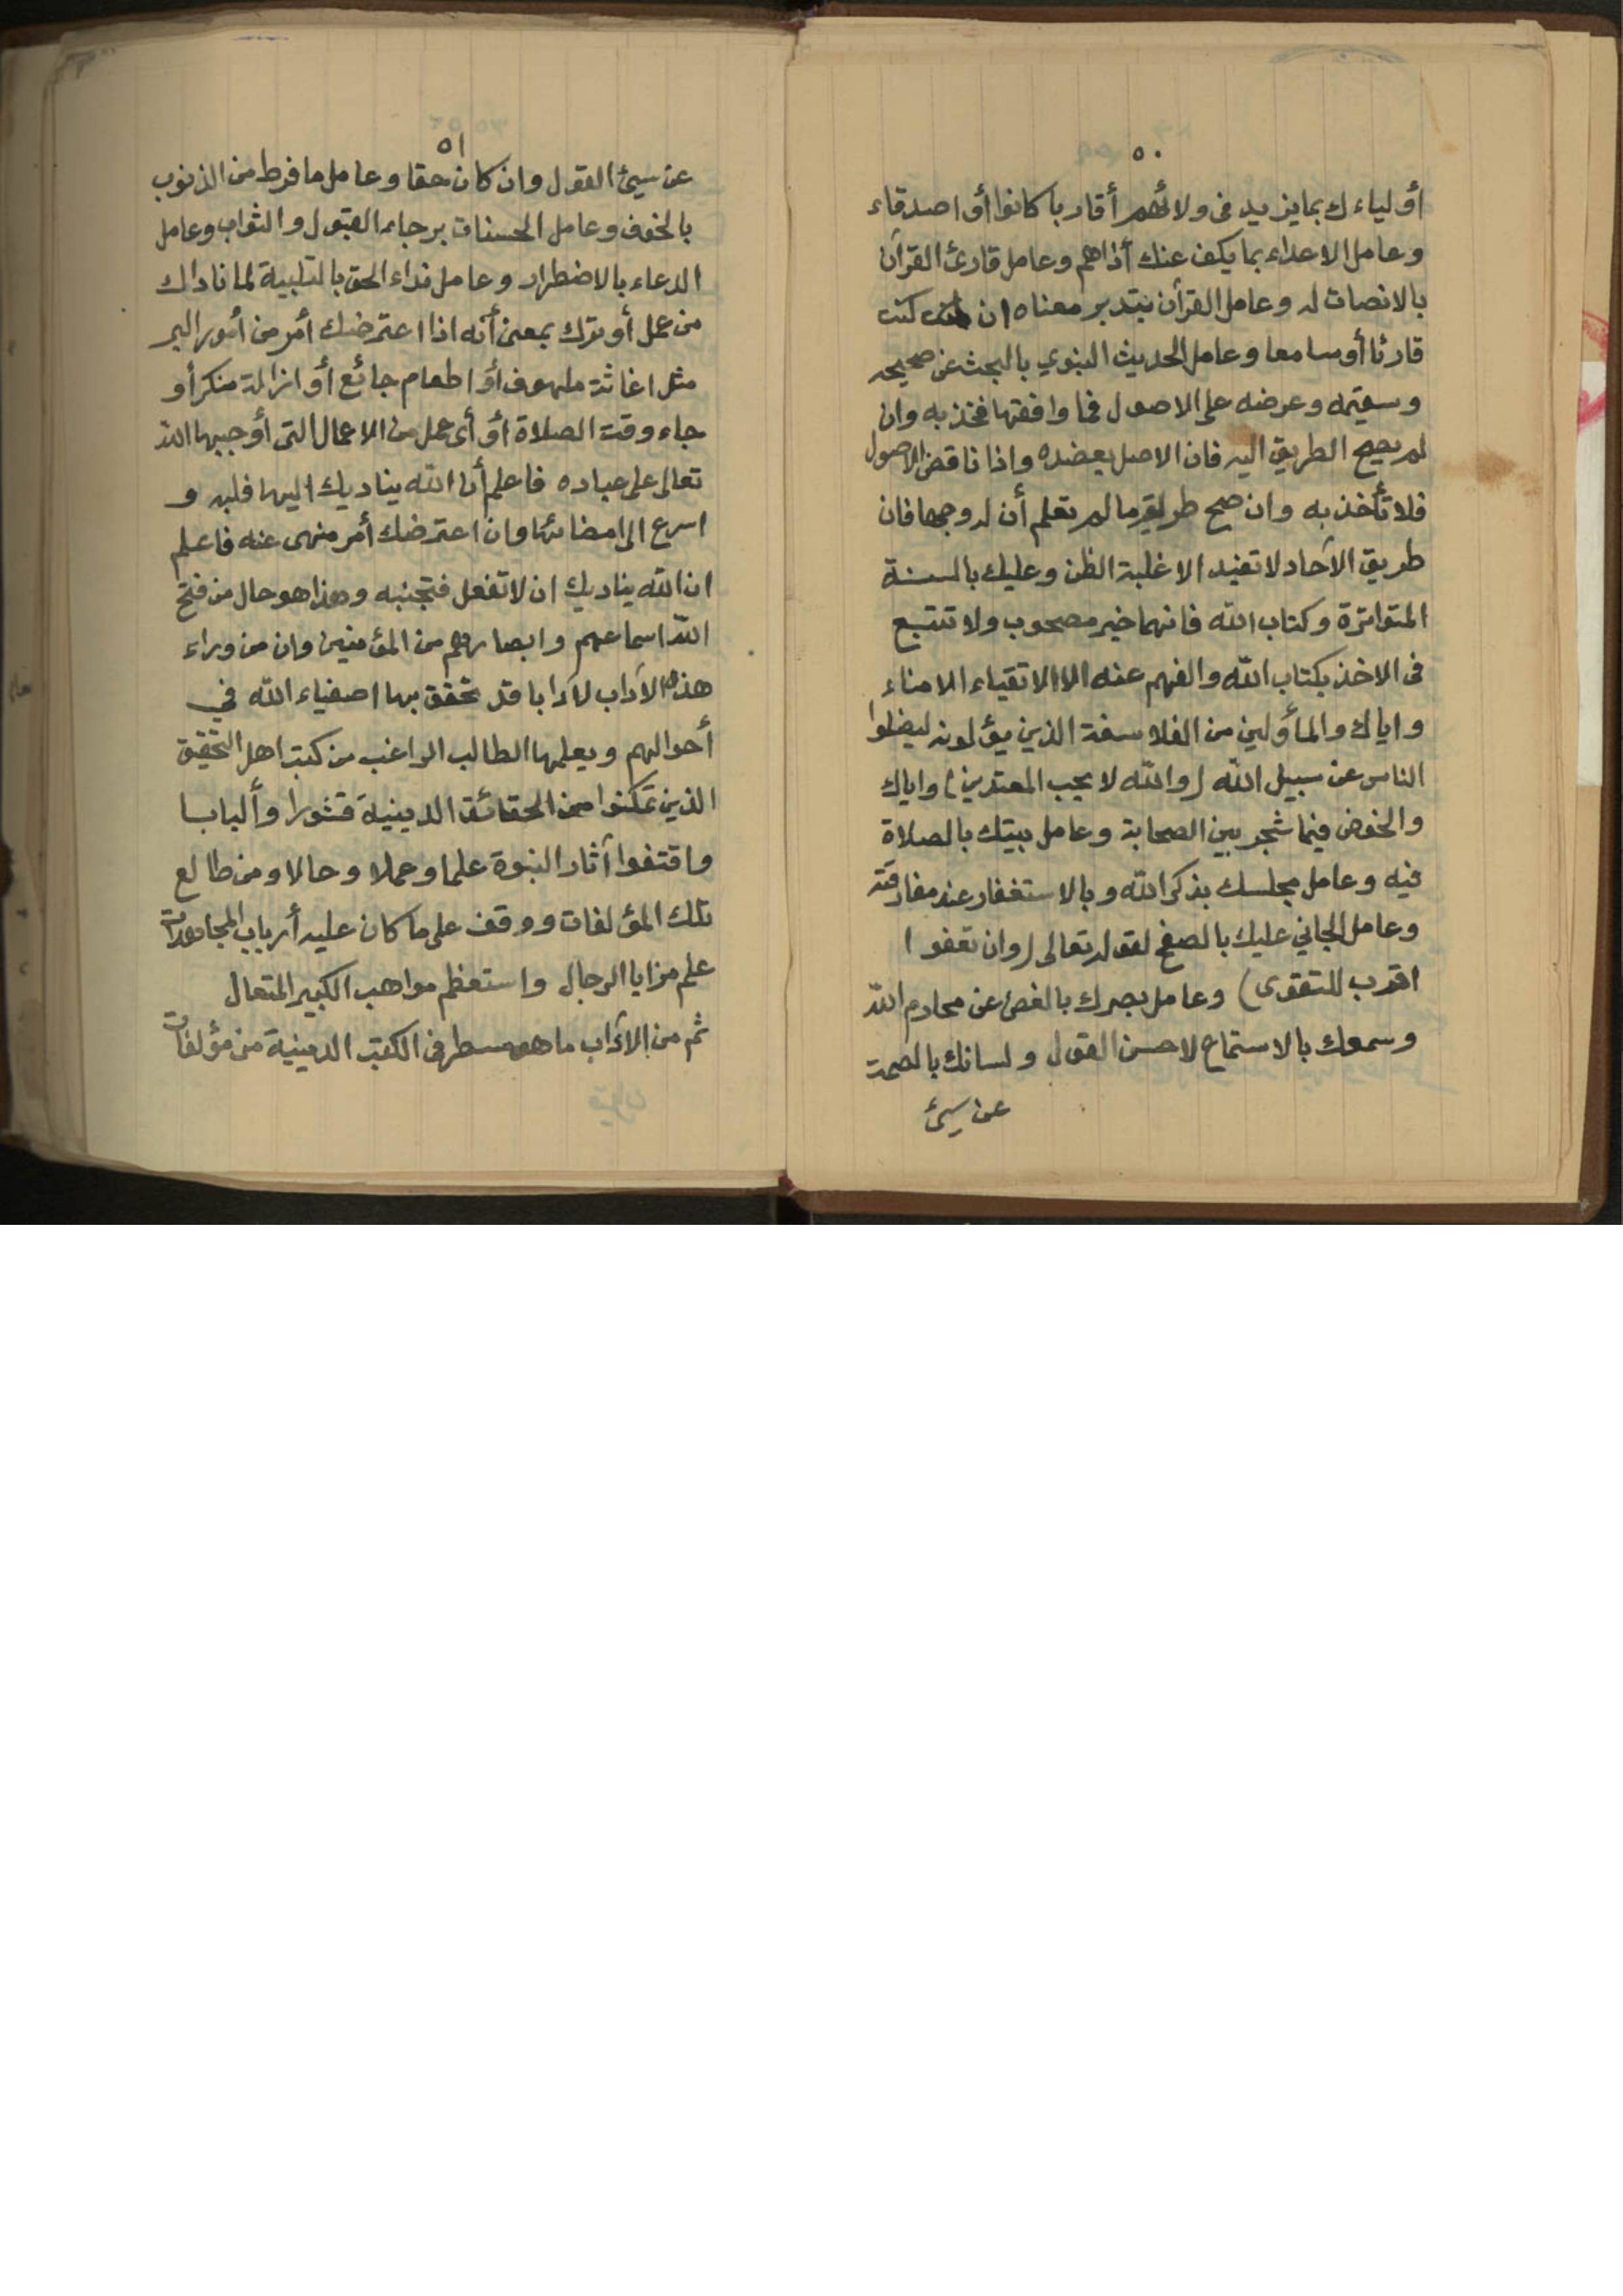 ٥٠
أولياءك بما يزيد في ولائهم أقاربا كانوا أو اصدقاء
وعامل الاعداء بما يكف عنك أذاهم وعامل قارئ القرآن
بالانصات له وعامل القرآن بتدبر معناه ان كنت
قارئا أو سامعا وعامل الحديث النبوي بالبحث عن صحيحه
وسقيمه وعرضه على الاصول فما وافقها فخذ به وان
لم يصح الطريق اليه فان الاصل يعضده واذا ناقض الاصول
فلا تأخذ به وان صح طريقه ما لم تعلم أن له وجها فان
طريق الآحاد لا تفيد الا غلبة الظن وعليك بالسنة
المتواترة وكتاب الله فانهما خير مصحوب ولا تتبع
في الاخذ بكتاب الله والفهم عنه الا الاتقياء الامناء
واياك والمأولين من الفلاسفة الذين يؤلونه ليضلوا
الناس عن سبيل الله (والله لا يحب المعتدين) واياك
والخوض فيما شجر بين الصحابة وعامل بيتك بالصلاة
فيه وعامل مجلسك بذكر الله وبالاستغفار عند مفارقته
وعامل الجاني عليك بالصفح لقوله تعالى (وان تعفوا
اقرب للتقوى) وعامل بصرك بالغض عن محارم الله
وسمعك بالاستماع لاحسن القول ولسانك بالصمت
عن سيئ
٥١
عن سيئ القول وان كان حقا وعامل ما فرط من الذنوب
بالخوف وعامل الحسنات برجاء القبول والثواب وعامل
الدعاء بالاضطرار وعامل نداء الحق بالتلبية لما ناداك
من عمل أو ترك بمعنى أنه اذا اعترضك أمر من أمور البر
مثل اغاثة ملهوف أو اطعام جائع أو ازالة منكر أو
جاء وقت الصلاة أو أي عمل من الاعمال التي أوجبها الله
تعالى على عباده فاعلم أن الله يناديك اليها فلبه و
اسرع الى امضائها وان اعترضك أمر منهى عنه فاعلم
ان الله يناديك ان لا تفعل فتجنبه وهذا هو حال من فتح
الله اسماعهم وابصارهم من المؤمنين وان من وراء
هذه الآداب لآدابا قد تحقق بها اصفياء الله في
أحوالهم ويعلمها الطالب الراغب من كتب اهل التحقيق
الذين تمكنوا من الحقائق الدينية قشورا وألبابا
واقتفوا آثار النبوة علما وعملا وحالا ومن طالع
تلك المؤلفات ووقف على ما كان عليه أرباب المجاهدات
علم مزايا الرجال واستعظم مواهب الكبير المتعال
ثم من الآداب ما هو مسطر في الكتب الدينية من مؤلفات